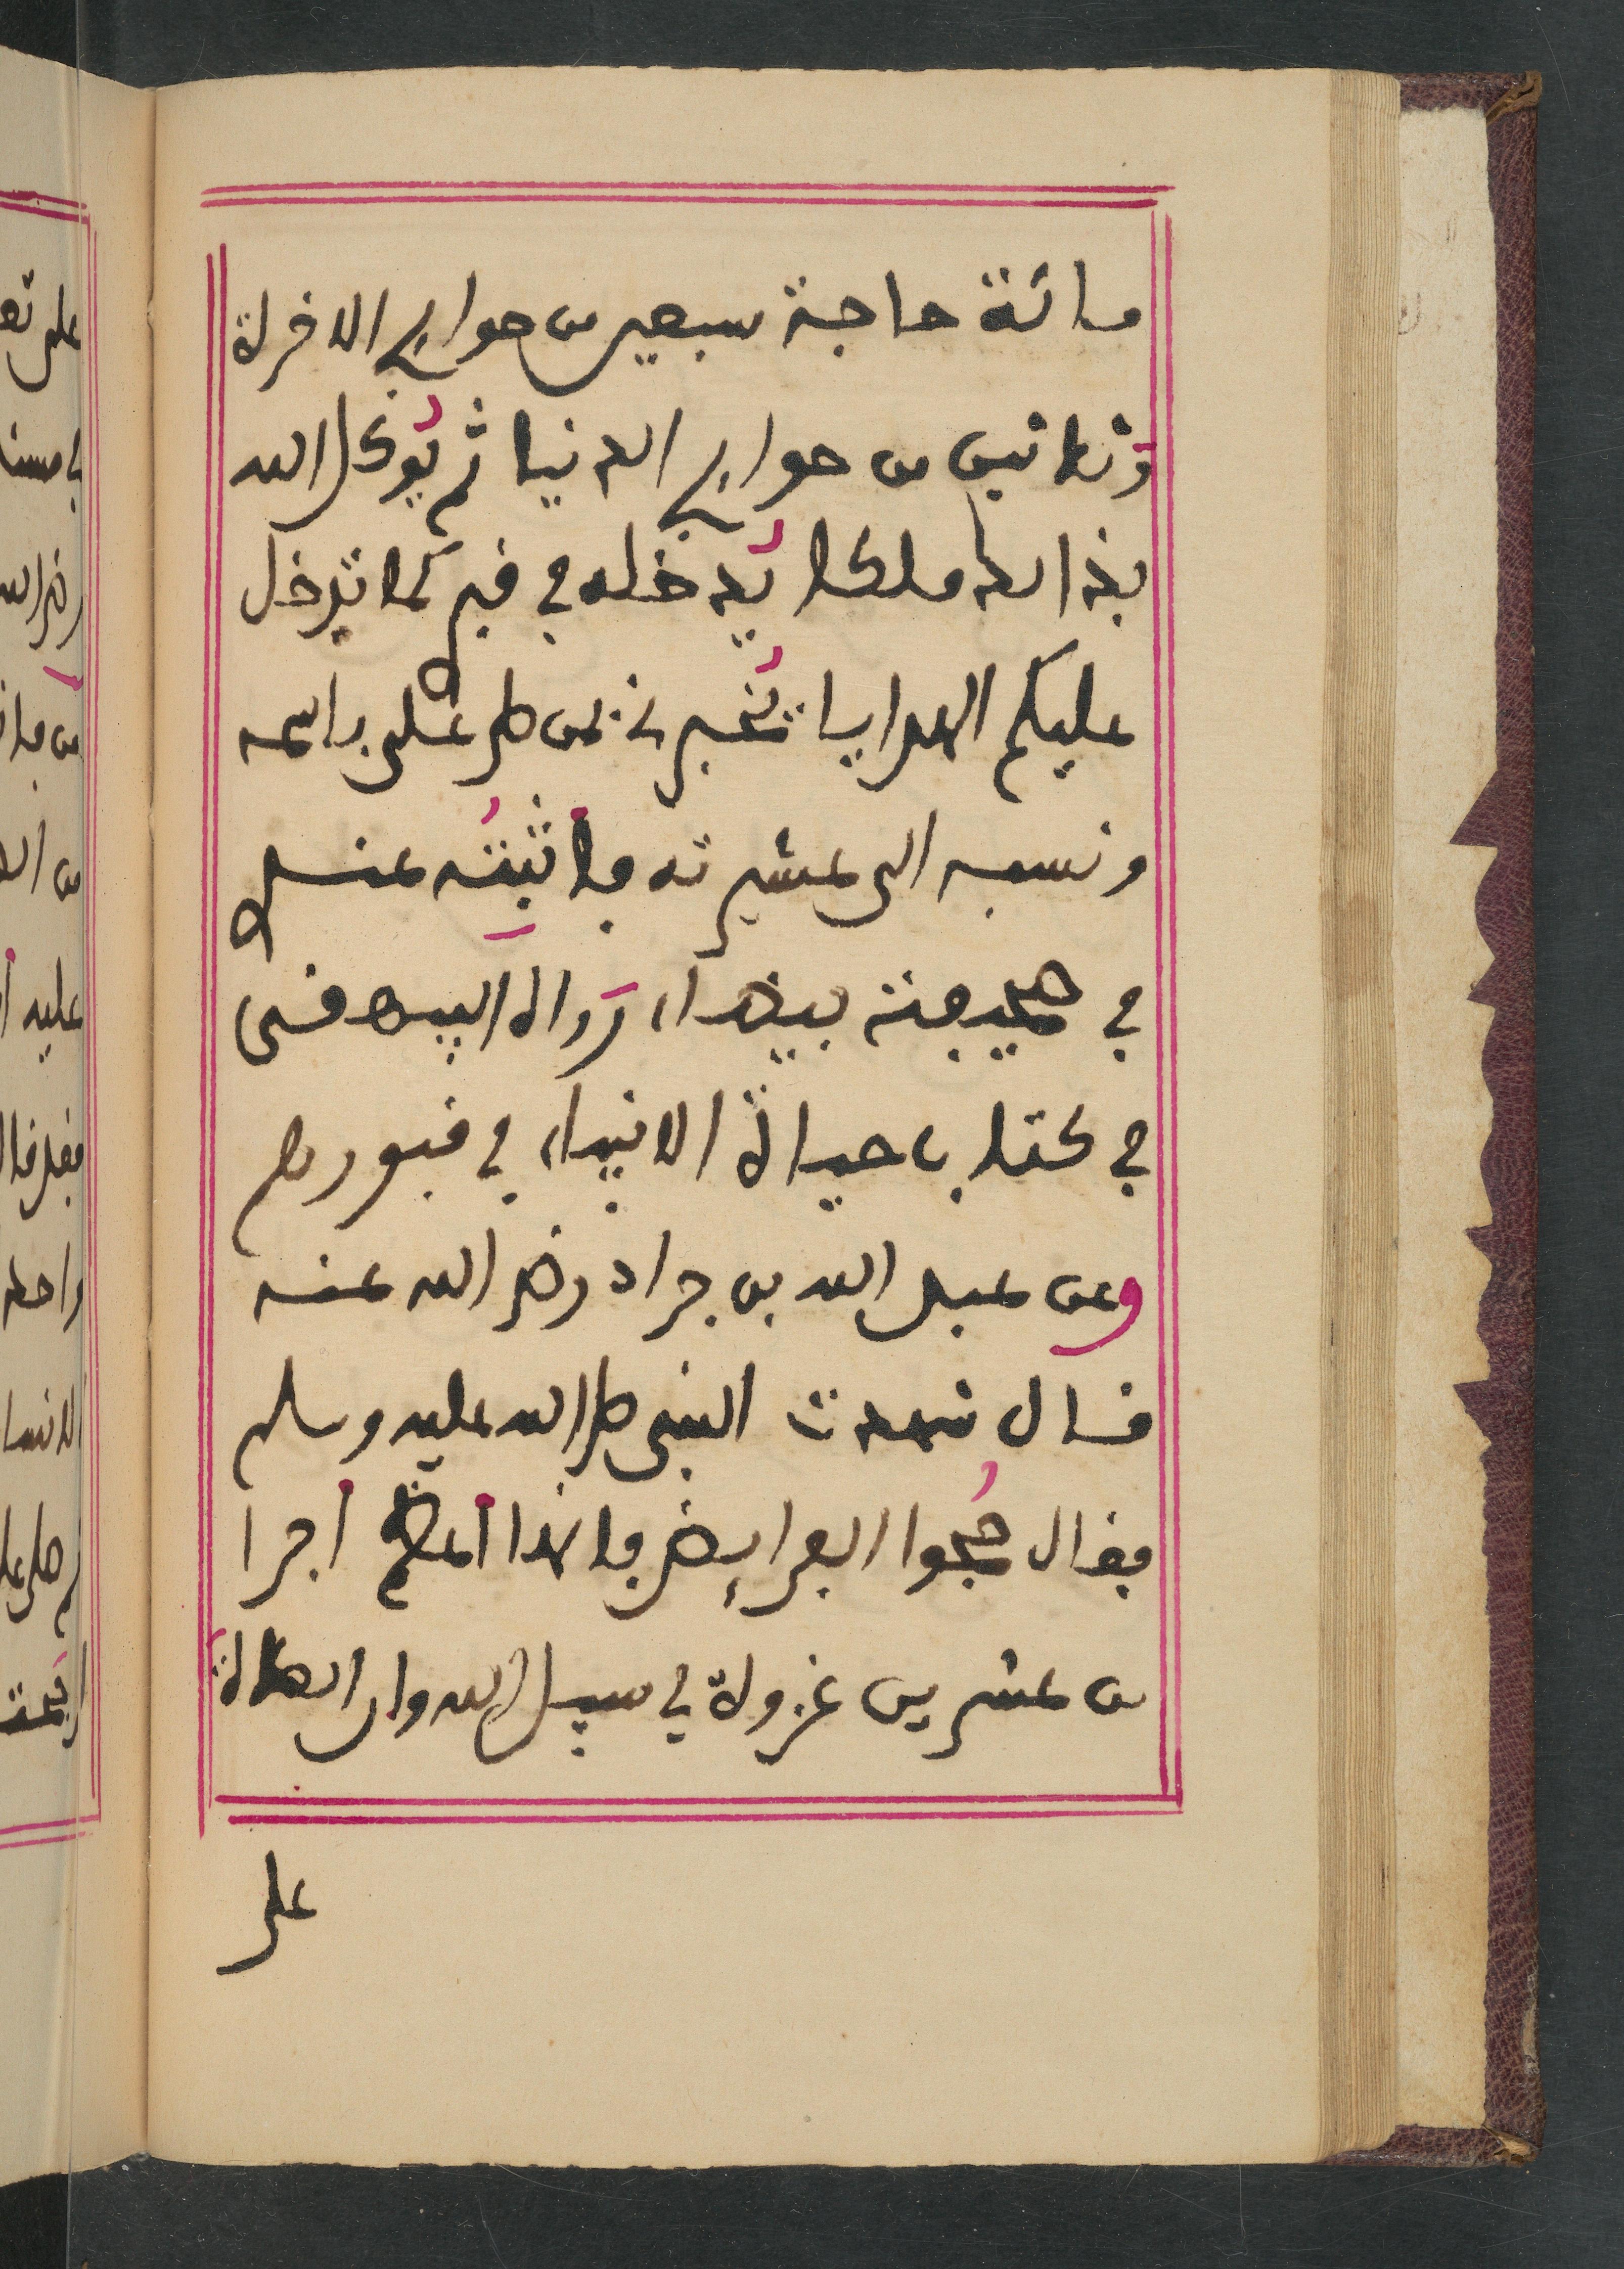 مائة حاجة سبعين من حوايج الاخرة
وثلاثين من حوايج الدنيا ثم يُوكل الله
بذالك ملكا يُدخله في قبري كما تدخل
عليكم الهدايا تُخبرني بمن صلى علي باسمه
ونسبه الى عشيرته فأثبِتُه عندي
في صحيفة بيضاء رَواه البيهقي
في كتاب حياة الانبياء في قبورهم
وعن عبد الله بن جراد رضي الله عنه
قال شهدت النبي صلى الله عليه وسلم
فقال حُجوا الفرايض فانها أعظم أجرا
من عشرين غزوة في سبيل الله وان الصلاة
على